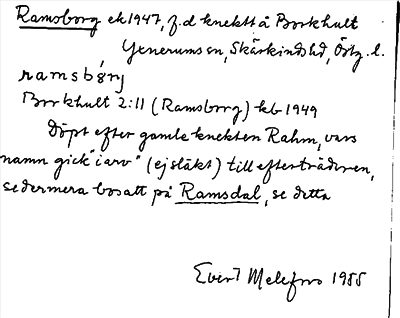 Ramsborg ek 1947, f.d knektt å Borkhult
Yxnerums sn, Skärkinds hd, Östg. l.
ramsbørj
Borkhult 2:11 (Ramsborg) kb 1949
Döpt efter gamle knekten Rahm, vars
namn gick "i arv" (ej släkt) till efterträdaren,
sedermera bosatt på Ramsdal, se detta
Evert Melefors 1955